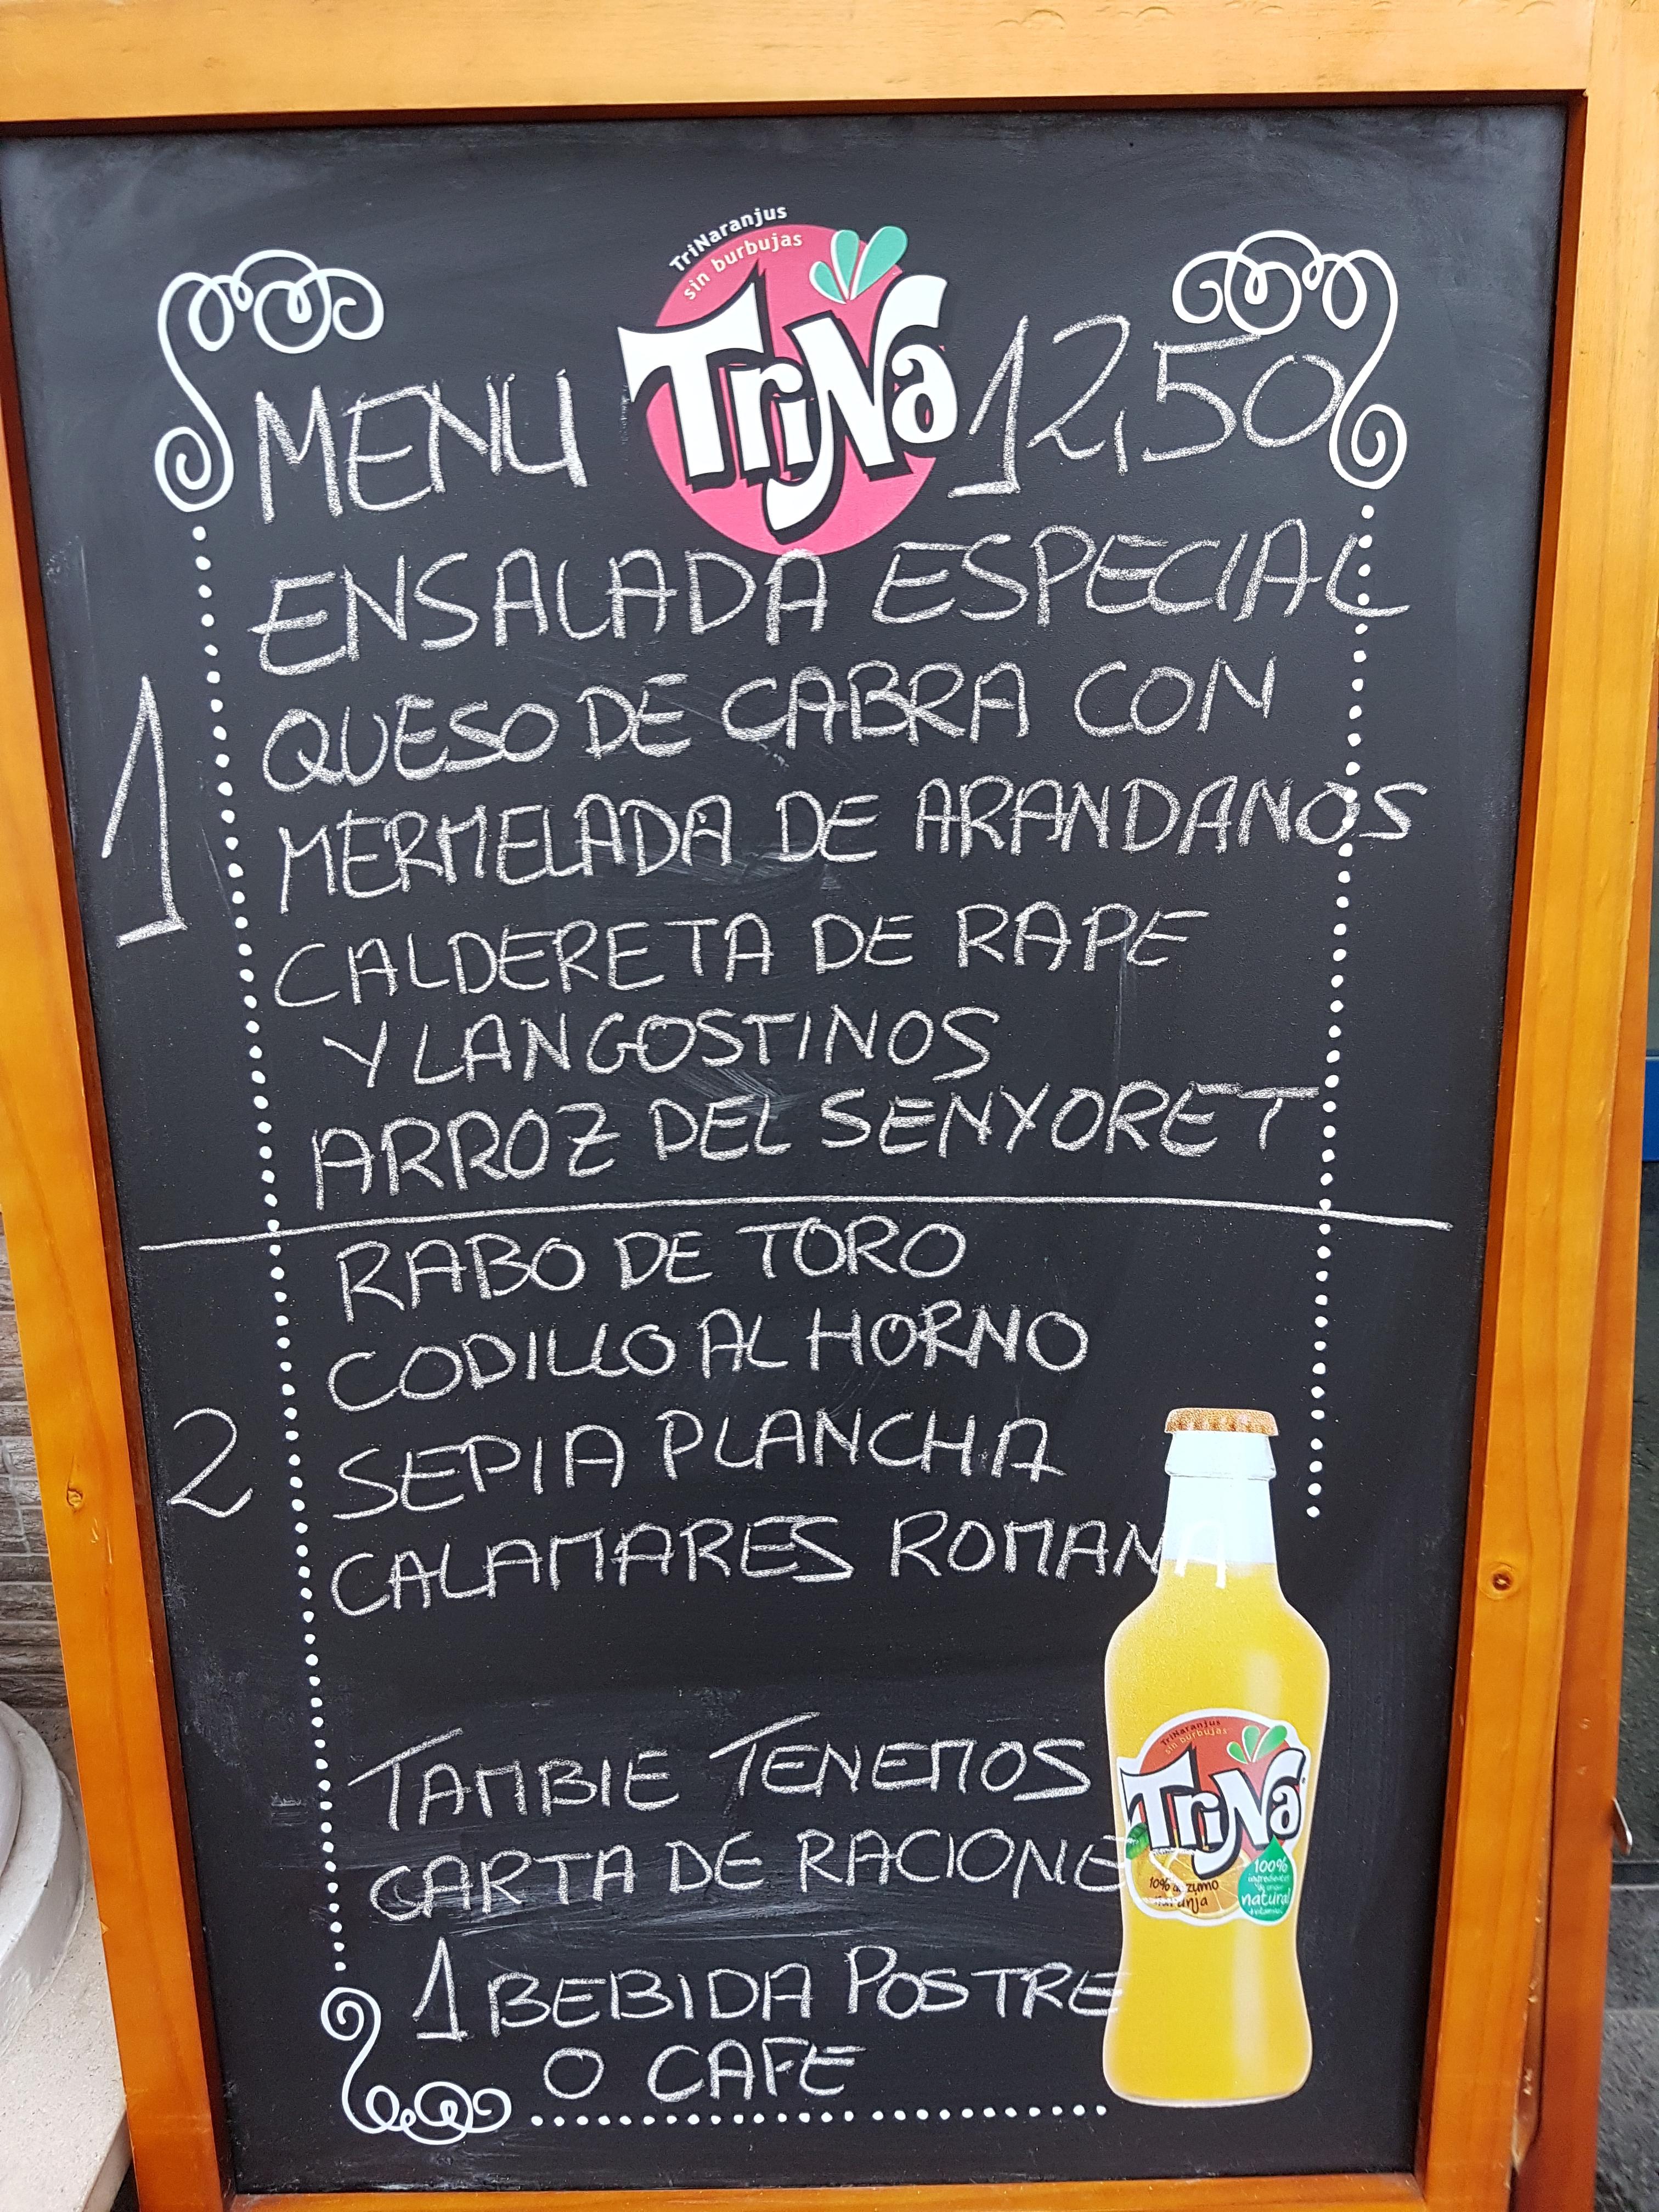 TriNaranjus
sin burbujas
MENU TriNa 12,50
ENSALADA ESPECIAL
QUESO DE CABRA CON
1
MERMELADA DE ARANDANOS
CALDERETA DE RAPE
Y LANGOSTINOS
ARROZ DEL SENYORET
RABO DE TORO
CODILLO AL HORNO
2
SEPIA PLANCHA
CALAMARES ROMANA
TAMBIE TENEMOS
CARTA DE RACIONES
1 BEBIDA POSTRE
O CAFE
TriNaranjus
sin burbujas
TriNa
100%
natural
10% de zumo
naranja